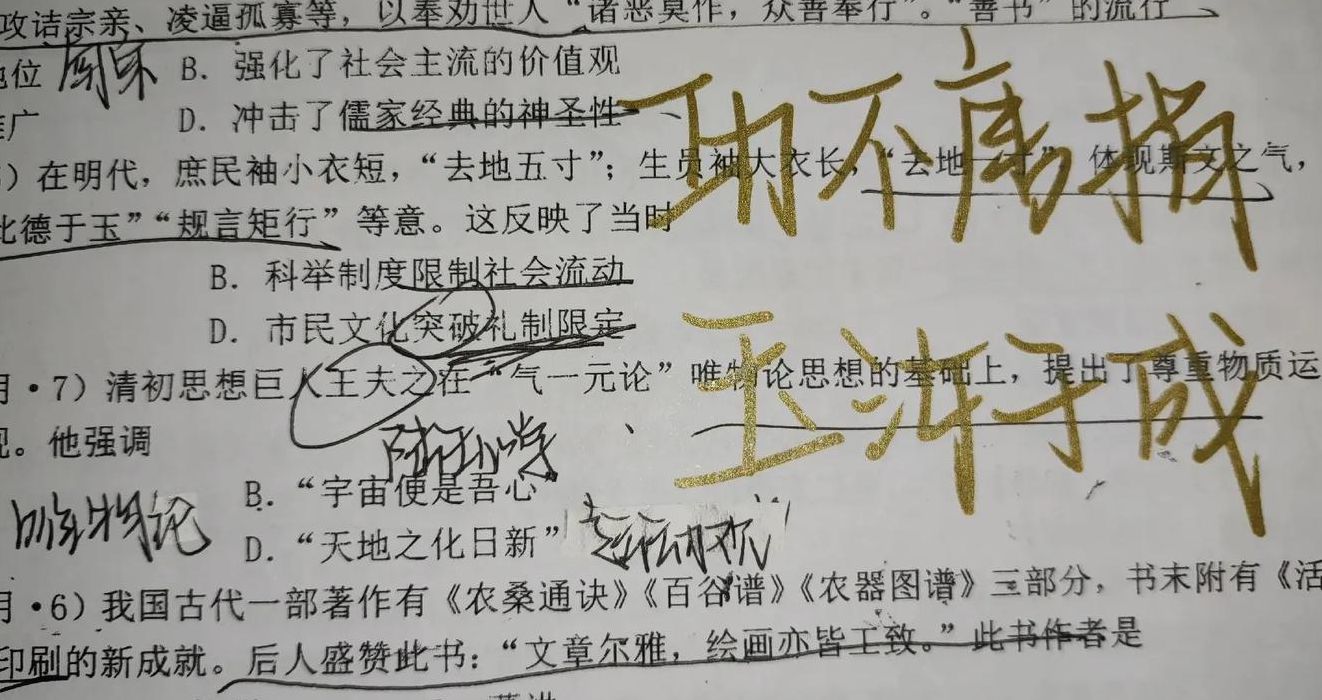 攻诘宗亲、凌逼孤寡等，以奉劝世人“诸恶莫作，众善奉行”。“善书”的流行
地位 B. 强化了社会主流的价值观
推广 D. 冲击了儒家经典的神圣性
功不唐捐
）在明代，庶民袖小衣短，“去地五寸”；生员袖大衣长，“去地一寸”，体现斯文之气，
比德于玉”“规言矩行”等意。这反映了当时
B. 科举制度限制社会流动
D. 市民文化突破礼制限定
玉汝于成
月·7）清初思想巨人王夫之在“气一元论”唯物论思想的基础上，提出了尊重物质运
观。他强调
陆王心学
B. “宇宙便是吾心”
唯物论
D. “天地之化日新” 运动观
月·6）我国古代一部著作有《农桑通诀》《百谷谱》《农器图谱》三部分，书末附有《活
印刷的新成就。后人盛赞此书：“文章尔雅，绘画亦皆工致。”此书作者是